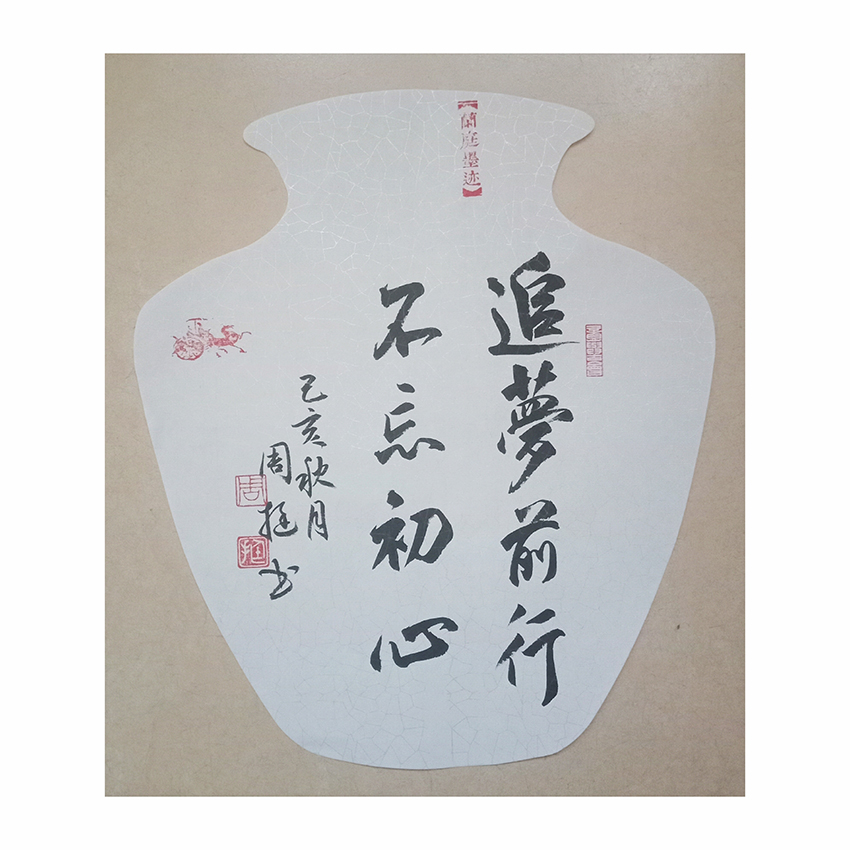 追夢前行
不忘初心
己亥秋月
周挺书
【蘭庭墨迹】
周